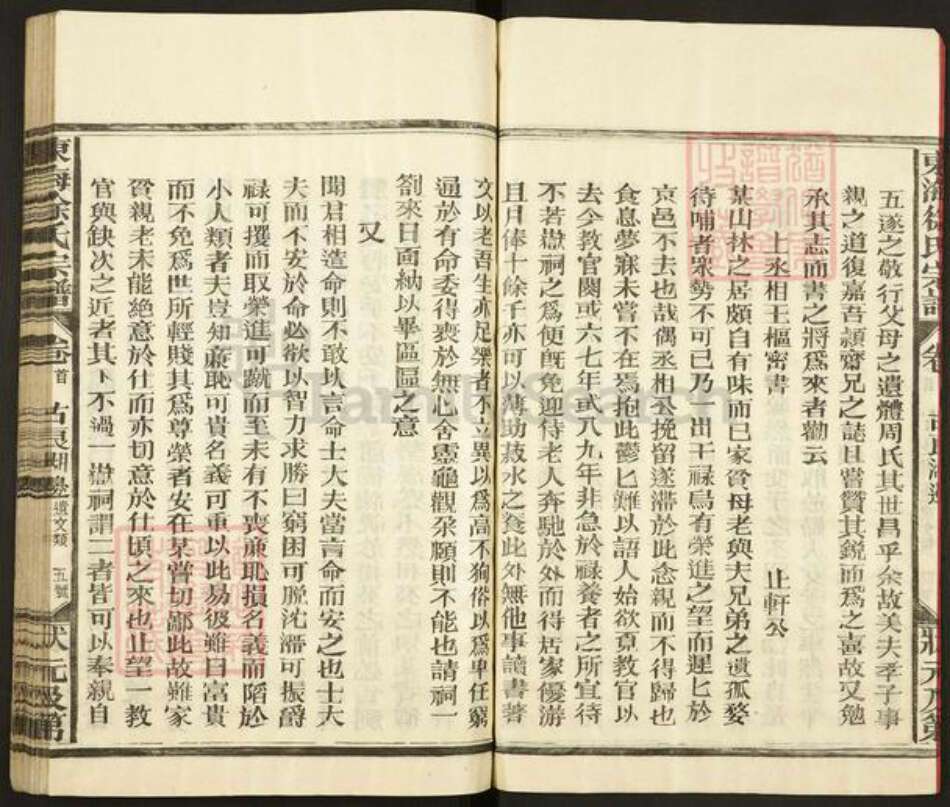 五遂之敬行父母之遺體周氏其世昌乎余故美夫季子事
親之道復嘉吾頴齋兄之誌且嘗贊其銳而爲之喜故又勉
承其志而書之將爲來者勸云
上丞相王樞密書 止軒公
某山林之居頗自有味而已家貧母老與夫兄弟之遺孤嫠
待哺者衆勢不可已乃出干禄烏有榮進之望而遲匕於
京邑不去也哉偶丞相公挽留遂滯於此念親而不得歸也
食息夢寐未嘗不在焉抱此鬱匕難以語人始欲覔教官以
去今教官闕或六七年或八九年非急於禄養者之所宜待
不若嶽祠之爲便旣免迎侍老人奔馳於外而得居家優游
且日俸十餘千亦可以薄助菽水之食此外無他事讀書著
文以老吾生亦足樂者不立異以爲高不狥俗以爲卑任窮
通於有命委得喪於無心舍靈龜觀朶願則不能也請祠一
劄來日面納以畢區區之意
又
聞君相造命則不敢以言命士大夫當言命而安之也士大
夫而不安於命必欲以智力求勝曰窮困可脱沈滯可振爵
禄可攫而取榮進可蹴而至未有不喪亷恥損名義而陷於
小人類者夫豈知亷恥可貴名義可重以此易彼雖曰富貴
而不免爲世所輕賤其爲尊榮者安在某嘗切鄙此故雖家
貧親老未能絶意於仕而亦切意於仕頃之來也止望一教
官與缺次之近者其卜不過一嶽祠謂二者皆可以奉親自
東海徐氏宗譜 卷首 遺文類 五號 狀元及第